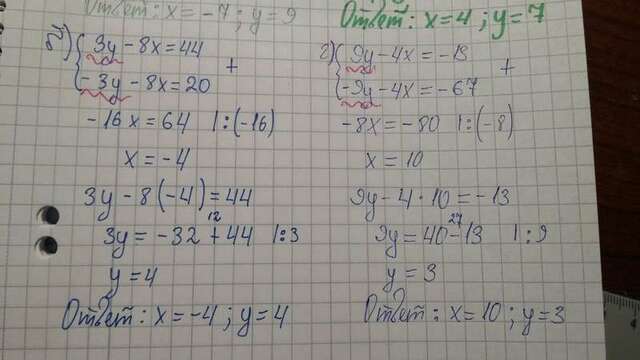 Ответ: x = -7; y = 9
б) 3y - 8x = 44
-3y - 8x = 20 +
-16x = 64 |:(-16)
x = -4
3y - 8(-4) = 44
12
3y = -32 + 44 |:3
y = 4
Ответ: x = -4; y = 4
Ответ: x = 4; y = 7
г) 9y - 4x = -13
-9y - 4x = -67 +
-8x = -80 |:(-8)
x = 10
9y - 4 · 10 = -13
27
9y = 40 - 13 |:9
y = 3
Ответ: x = 10; y = 3